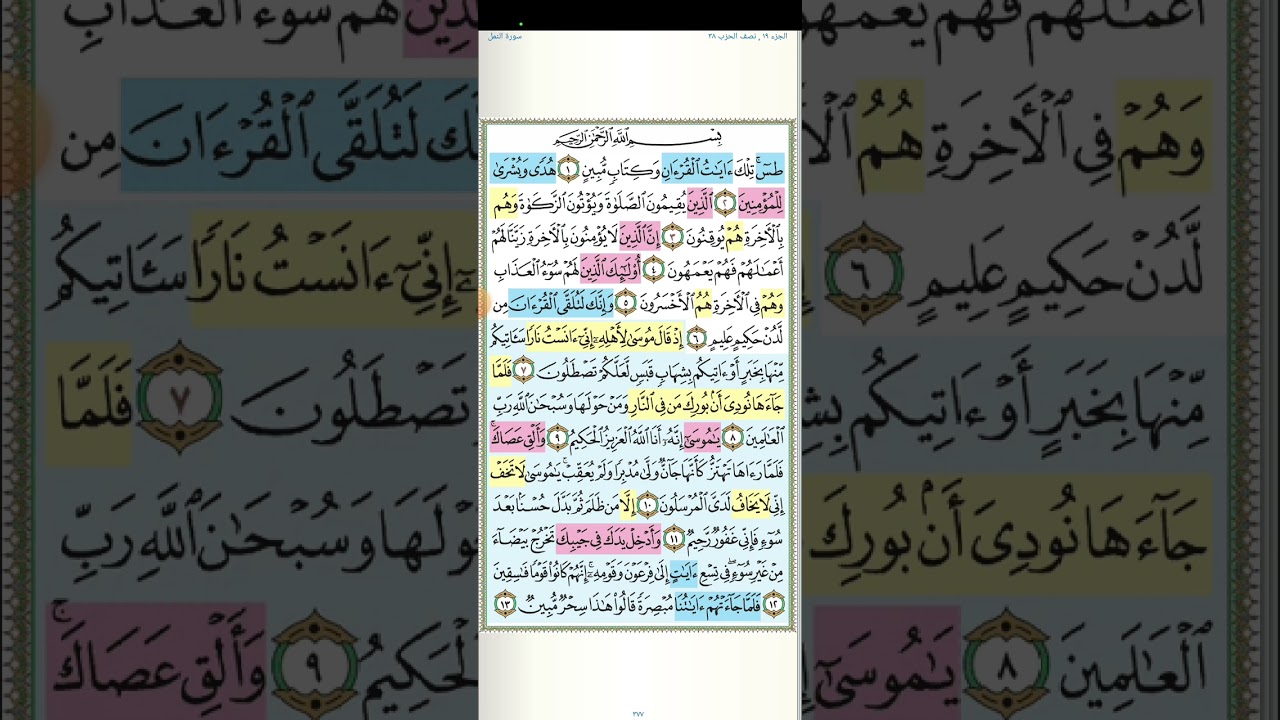 الجزء ١٩ , نصف الحزب ٣٨
سورة النمل
بِسْمِ ٱللَّهِ ٱلرَّحْمَٰنِ ٱلرَّحِيمِ
طسٓۚ تِلْكَ ءَايَٰتُ ٱلْقُرْءَانِ وَكِتَابٍ مُّبِينٍ ١ هُدًى وَبُشْرَىٰ
لِلْمُؤْمِنِينَ ٢ ٱلَّذِينَ يُقِيمُونَ ٱلصَّلَوٰةَ وَيُؤْتُونَ ٱلزَّكَوٰةَ وَهُم
بِٱلْءَاخِرَةِ هُمْ يُوقِنُونَ ٣ إِنَّ ٱلَّذِينَ لَا يُؤْمِنُونَ بِٱلْءَاخِرَةِ زَيَّنَّا لَهُمْ
أَعْمَٰلَهُمْ فَهُمْ يَعْمَهُونَ ٤ أُو۟لَٰٓئِكَ ٱلَّذِينَ لَهُمْ سُوٓءُ ٱلْعَذَابِ
وَهُمْ فِى ٱلْءَاخِرَةِ هُمُ ٱلْأَخْسَرُونَ ٥ وَإِنَّكَ لَتُلَقَّى ٱلْقُرْءَانَ مِن
لَّدُنْ حَكِيمٍ عَلِيمٍ ٦ إِذْ قَالَ مُوسَىٰ لِأَهْلِهِۦٓ إِنِّىٓ ءَانَسْتُ نَارًا سَـَٔاتِيكُم
مِّنْهَا بِخَبَرٍ أَوْ ءَاتِيكُم بِشِهَابٍ قَبَسٍ لَّعَلَّكُمْ تَصْطَلُونَ ٧ فَلَمَّا
جَآءَهَا نُودِىَ أَنۢ بُورِكَ مَن فِى ٱلنَّارِ وَمَنْ حَوْلَهَا وَسُبْحَٰنَ ٱللَّهِ رَبِّ
ٱلْعَٰلَمِينَ ٨ يَٰمُوسَىٰٓ إِنَّهُۥٓ أَنَا ٱللَّهُ ٱلْعَزِيزُ ٱلْحَكِيمُ ٩ وَأَلْقِ عَصَاكَۚ
فَلَمَّا رَءَاهَا تَهْتَزُّ كَأَنَّهَا جَآنٌّ وَلَّىٰ مُدْبِرًا وَلَمْ يُعَقِّبْۚ يَٰمُوسَىٰ لَا تَخَفْ
إِنِّى لَا يَخَافُ لَدَىَّ ٱلْمُرْسَلُونَ ١٠ إِلَّا مَن ظَلَمَ ثُمَّ بَدَّلَ حُسْنًۢا بَعْدَ
سُوٓءٍ فَإِنِّى غَفُورٌ رَّحِيمٌ ١١ وَأَدْخِلْ يَدَكَ فِى جَيْبِكَ تَخْرُجْ بَيْضَآءَ
مِنْ غَيْرِ سُوٓءٍۖ فِى تِسْعِ ءَايَٰتٍ إِلَىٰ فِرْعَوْنَ وَقَوْمِهِۦٓۚ إِنَّهُمْ كَانُوا۟ قَوْمًا فَٰسِقِينَ
١٢ فَلَمَّا جَآءَتْهُمْ ءَايَٰتُنَا مُبْصِرَةً قَالُوا۟ هَٰذَا سِحْرٌ مُّبِينٌ ١٣
٣٧٧